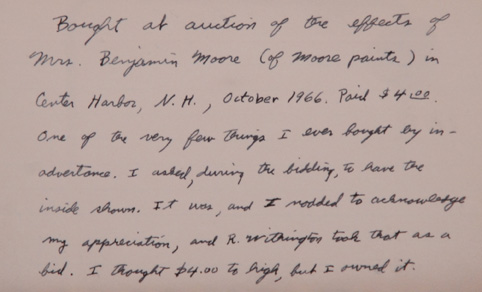 Bought at auction of the effects of
Mrs. Benjamin Moore (of Moore paints) in
Center Harbor, N.H., October 1966. Paid $4.00.
One of the very few things I ever bought by in-
advertance. I asked, during the bidding, to have the
inside shown. It was, and I nodded to acknowledge
my appreciation, and R. Withington took that as a
bid. I thought $4.00 to high, but I owned it.